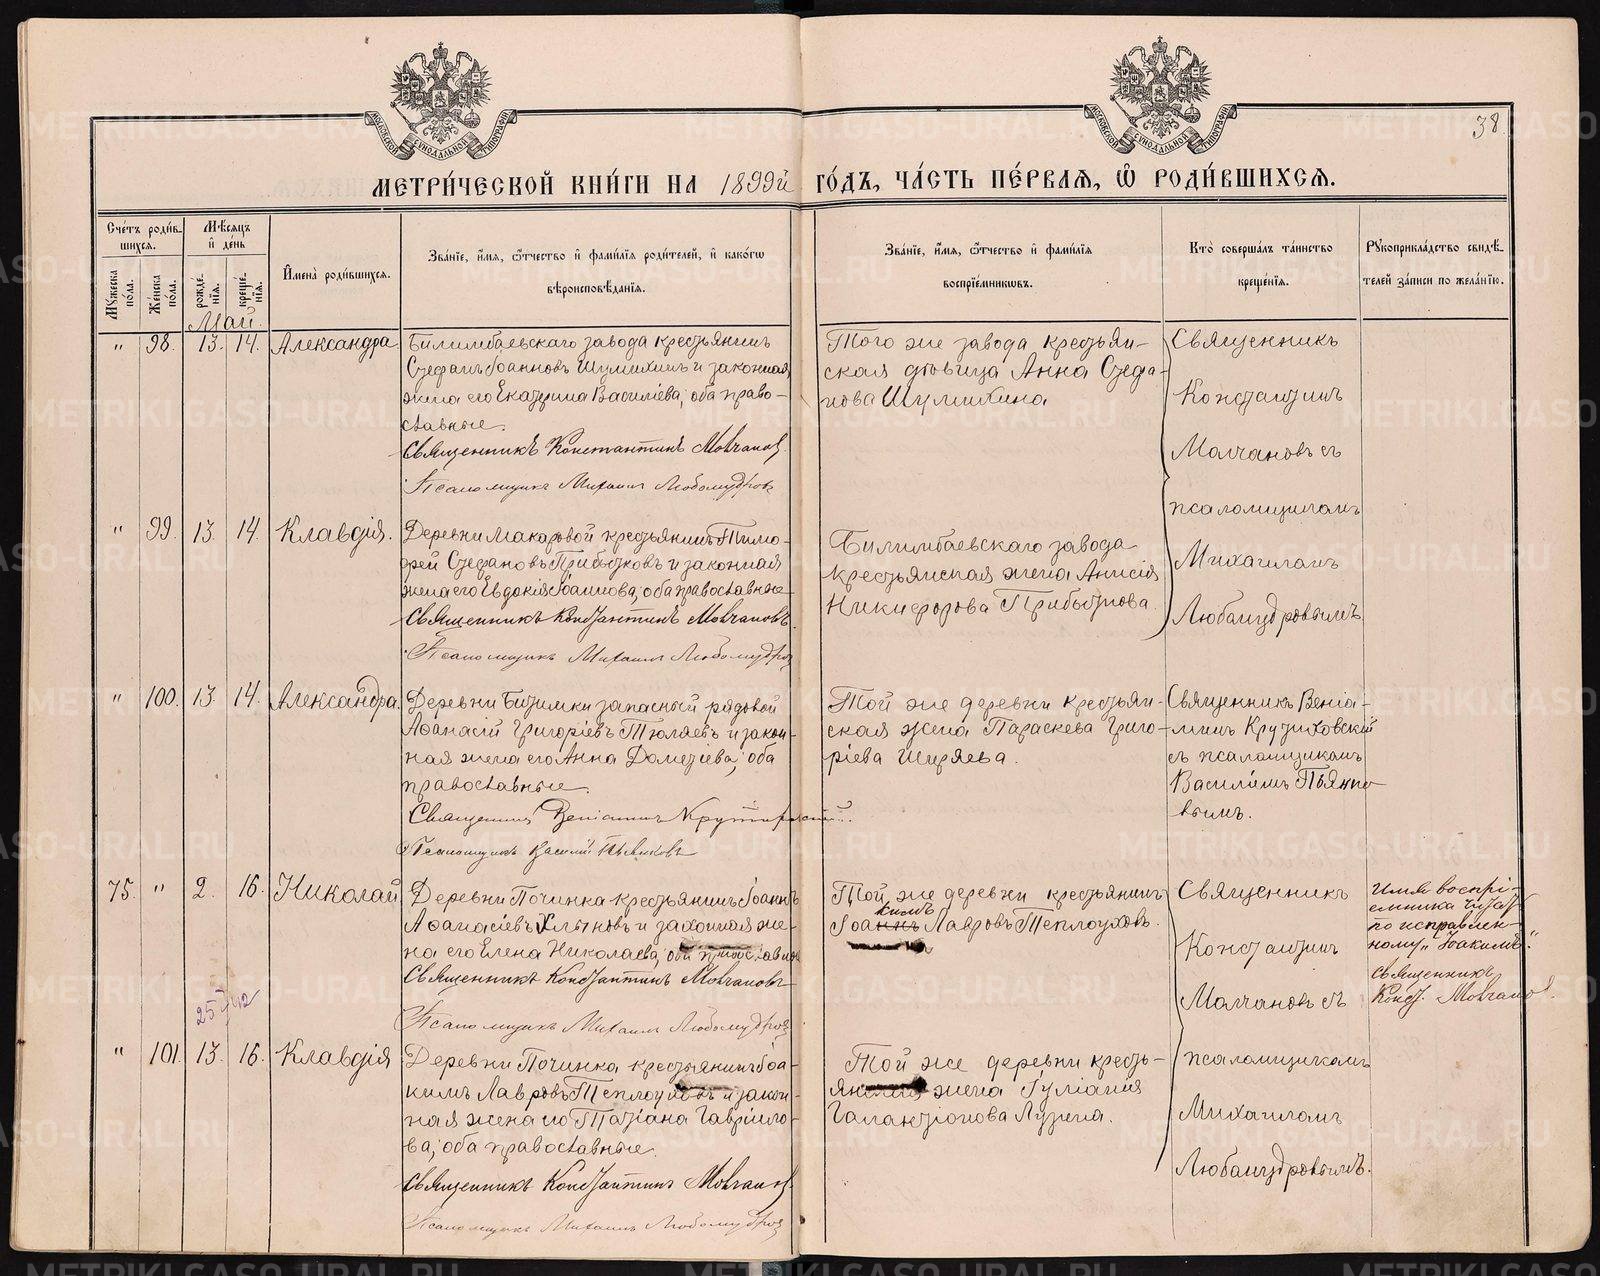 38
МЕТРИ́ЧЕСКОЙ КНИ́ГИ НА 1899й ГО́ДЪ, ЧА́СТЬ ПЕ́РВАЯ, Ѿ РОДИ́ВШИХСЯ.
Сче́тъ роди́в-
шихся.
Мѣ́сяцъ
и҆ де́нь
Мꙋ́жеска по́ла.
Же́нска по́ла.
рожде́-
нїя.
креще́-
нїя.
И҆мена̀ роди́вшихся.
Зва́нїе, и҆́мя, ѻ҆́тчество и҆ фами́лїя роди́телей, и҆ како́гѡ
вѣроисповѣ́данїя.
Зва́нїе, и҆́мя, ѻ҆́тчество и҆ фами́лїя
воспрїе́мникѡвъ.
Кто̀ соверша́лъ та́инство
креще́нїя.
Рꙋкоприкла́дство свидѣ́-
телей за́писи по жела́нїю.
Май.
" 98. 13. 14. Александра
Билимбаевскаго завода крестьянинъ
Стефанъ Іоанновъ Шумихинъ и законная
жена его Екатерина Василіева, оба право-
славные.
Священникъ Константинъ Молчановъ
Псаломщикъ Михаилъ Любомудровъ
Того же завода крестьян-
ская дѣвица Анна Стефа-
нова Шумихина
Священникъ
Константинъ
Молчановъ съ
псаломщикомъ
Михаиломъ
Любомудровымъ
" 99. 13. 14. Клавдія.
Деревни Макаровой крестьянинъ Тимо-
фей Стефановъ Прибытковъ и законная
жена его Евдокія Іоаннова, оба православные
Священникъ Константинъ Молчановъ.
Псаломщикъ Михаилъ Любомудровъ
Билимбаевскаго завода
крестьянская жена Анисія
Никифорова Прибыткова.
" 100. 13. 14. Александра.
Деревни Битимки запасный рядовой
Аѳанасій Григоріевъ Тюляевъ и закон-
ная жена его Анна Дометіева, оба
православные.
Священникъ Веніаминъ
Псаломщикъ Василій Пьянковъ
Той же деревни крестьян-
ская жена Параскева Григо-
ріева Ширяева.
Священникъ Веніа-
минъ
съ псаломщикомъ
Василіемъ Пьянко-
вымъ.
75. " 2. 16. Николай
Деревни Починка крестьянинъ Іоаннъ
Аѳанасіевъ и законная же-
на его Елена Николаева, оба православные
Священникъ Константинъ Молчановъ
Псаломщикъ Михаилъ Любомудровъ
Той же деревни крестьянинъ
кимъ
Іоаннъ Лавровъ Теплоуховъ.
Священникъ
Константинъ
Молчановъ съ
псаломщикомъ
Михаиломъ
Любомудровымъ.
Имя воспрі-
емника читать
по исправлен-
ному „Іоакимъ".
Священникъ
Конст. Молчановъ.
" 101. 13. 16. Клавдія
Деревни Починка крестьянинъ Іоа-
кимъ Лавровъ Теплоуховъ и закон-
ная жена его Татіана Гавріило-
ва, оба православные.
Священникъ Константинъ Молчановъ.
Псаломщикъ Михаилъ Любомудровъ
Той же деревни кресть-
янская жена Іуліанія
Галактіонова Лузина.
METRIKI.GASO-URAL.RU